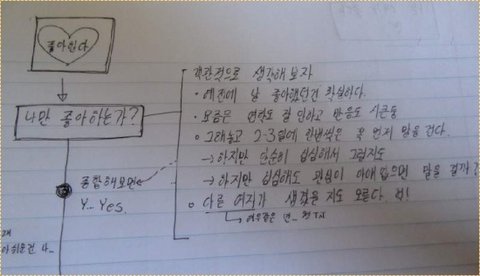 좋아한다
나만 좋아하는가?
객관적으로 생각해보자
· 예전에 날 좋아했던건 확실하다.
· 요즘은 연락도 잘 안하고 반응도 시큰둥
· 그래놓고 2-3일에 한번씩은 꼭 먼저 말을 건다.
→ 하지만 단순히 심심해서 그럴지도
→ 하지만 심심해도 관심이 아예 없으면 말을 걸까?
○ 다른 여자가 생겼을 지도 모른다
종합해보면
Y.. Yes.